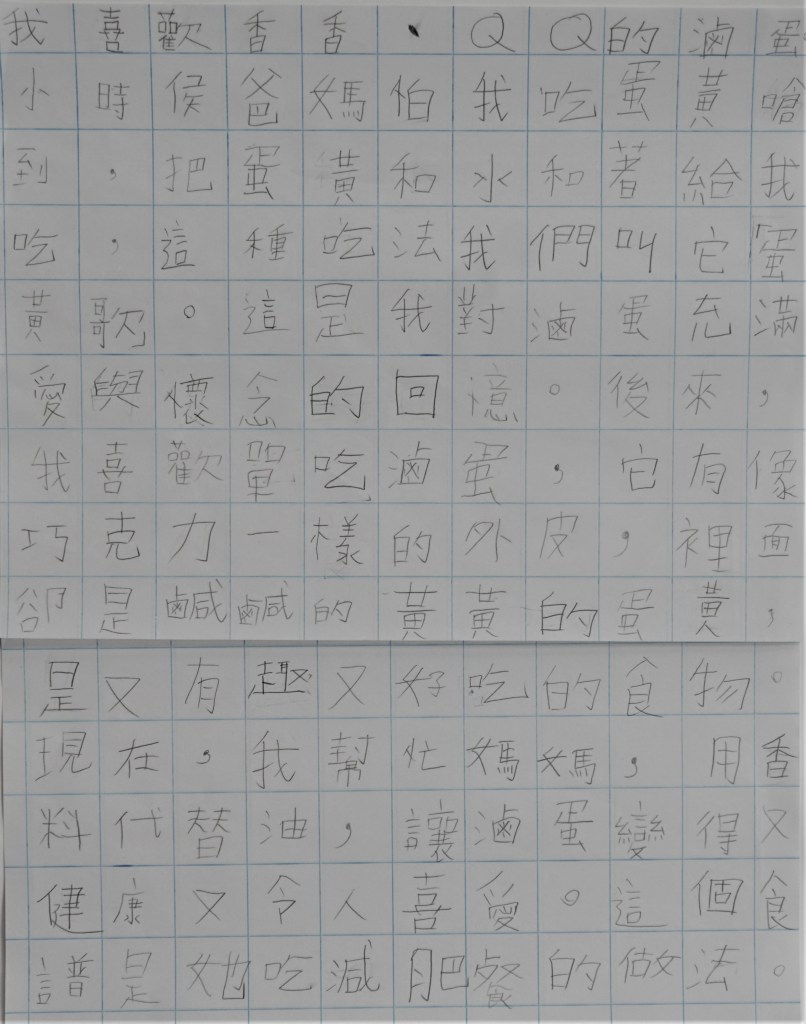 我喜歡香香、QQ的滷蛋。
小時侯爸媽怕我吃蛋黃嗆
到，把蛋黃和水和著給我
吃，這種吃法我們叫它「蛋
黃歌」。這是我對滷蛋充滿
愛與懷念的回憶。後來，
我喜歡單吃滷蛋，它有像
巧克力一樣的外皮，裡面
卻是鹹鹹的黃黃的蛋黃，
是又有趣又好吃的食物。
現在，我幫忙媽媽，用香
料代替油，讓滷蛋變得又
健康又令人喜愛。這個食
譜是她吃減肥餐的做法。